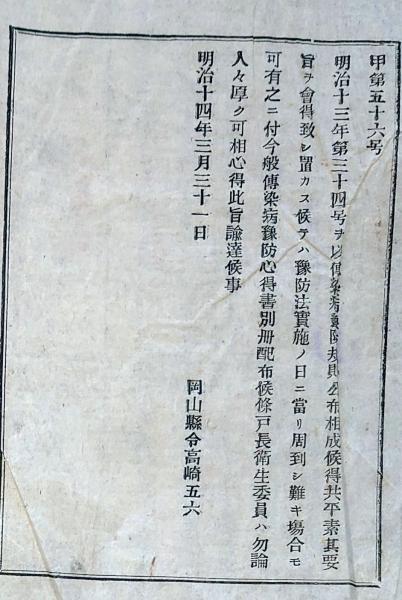 甲第五十六号
明治十三年第三十四号ヲ以傳染病豫防規則公布相成候得共平素其要
旨ヲ會得致シ置カス候テハ豫防法實施ノ日ニ當リ周到シ難キ塲合モ
可有之ニ付今般傳染病豫防心得書別册配布候條戸長衛生委員ハ勿論
人々厚ク可相心得此旨諭達候事
明治十四年三月三十一日
岡山縣令高崎五六